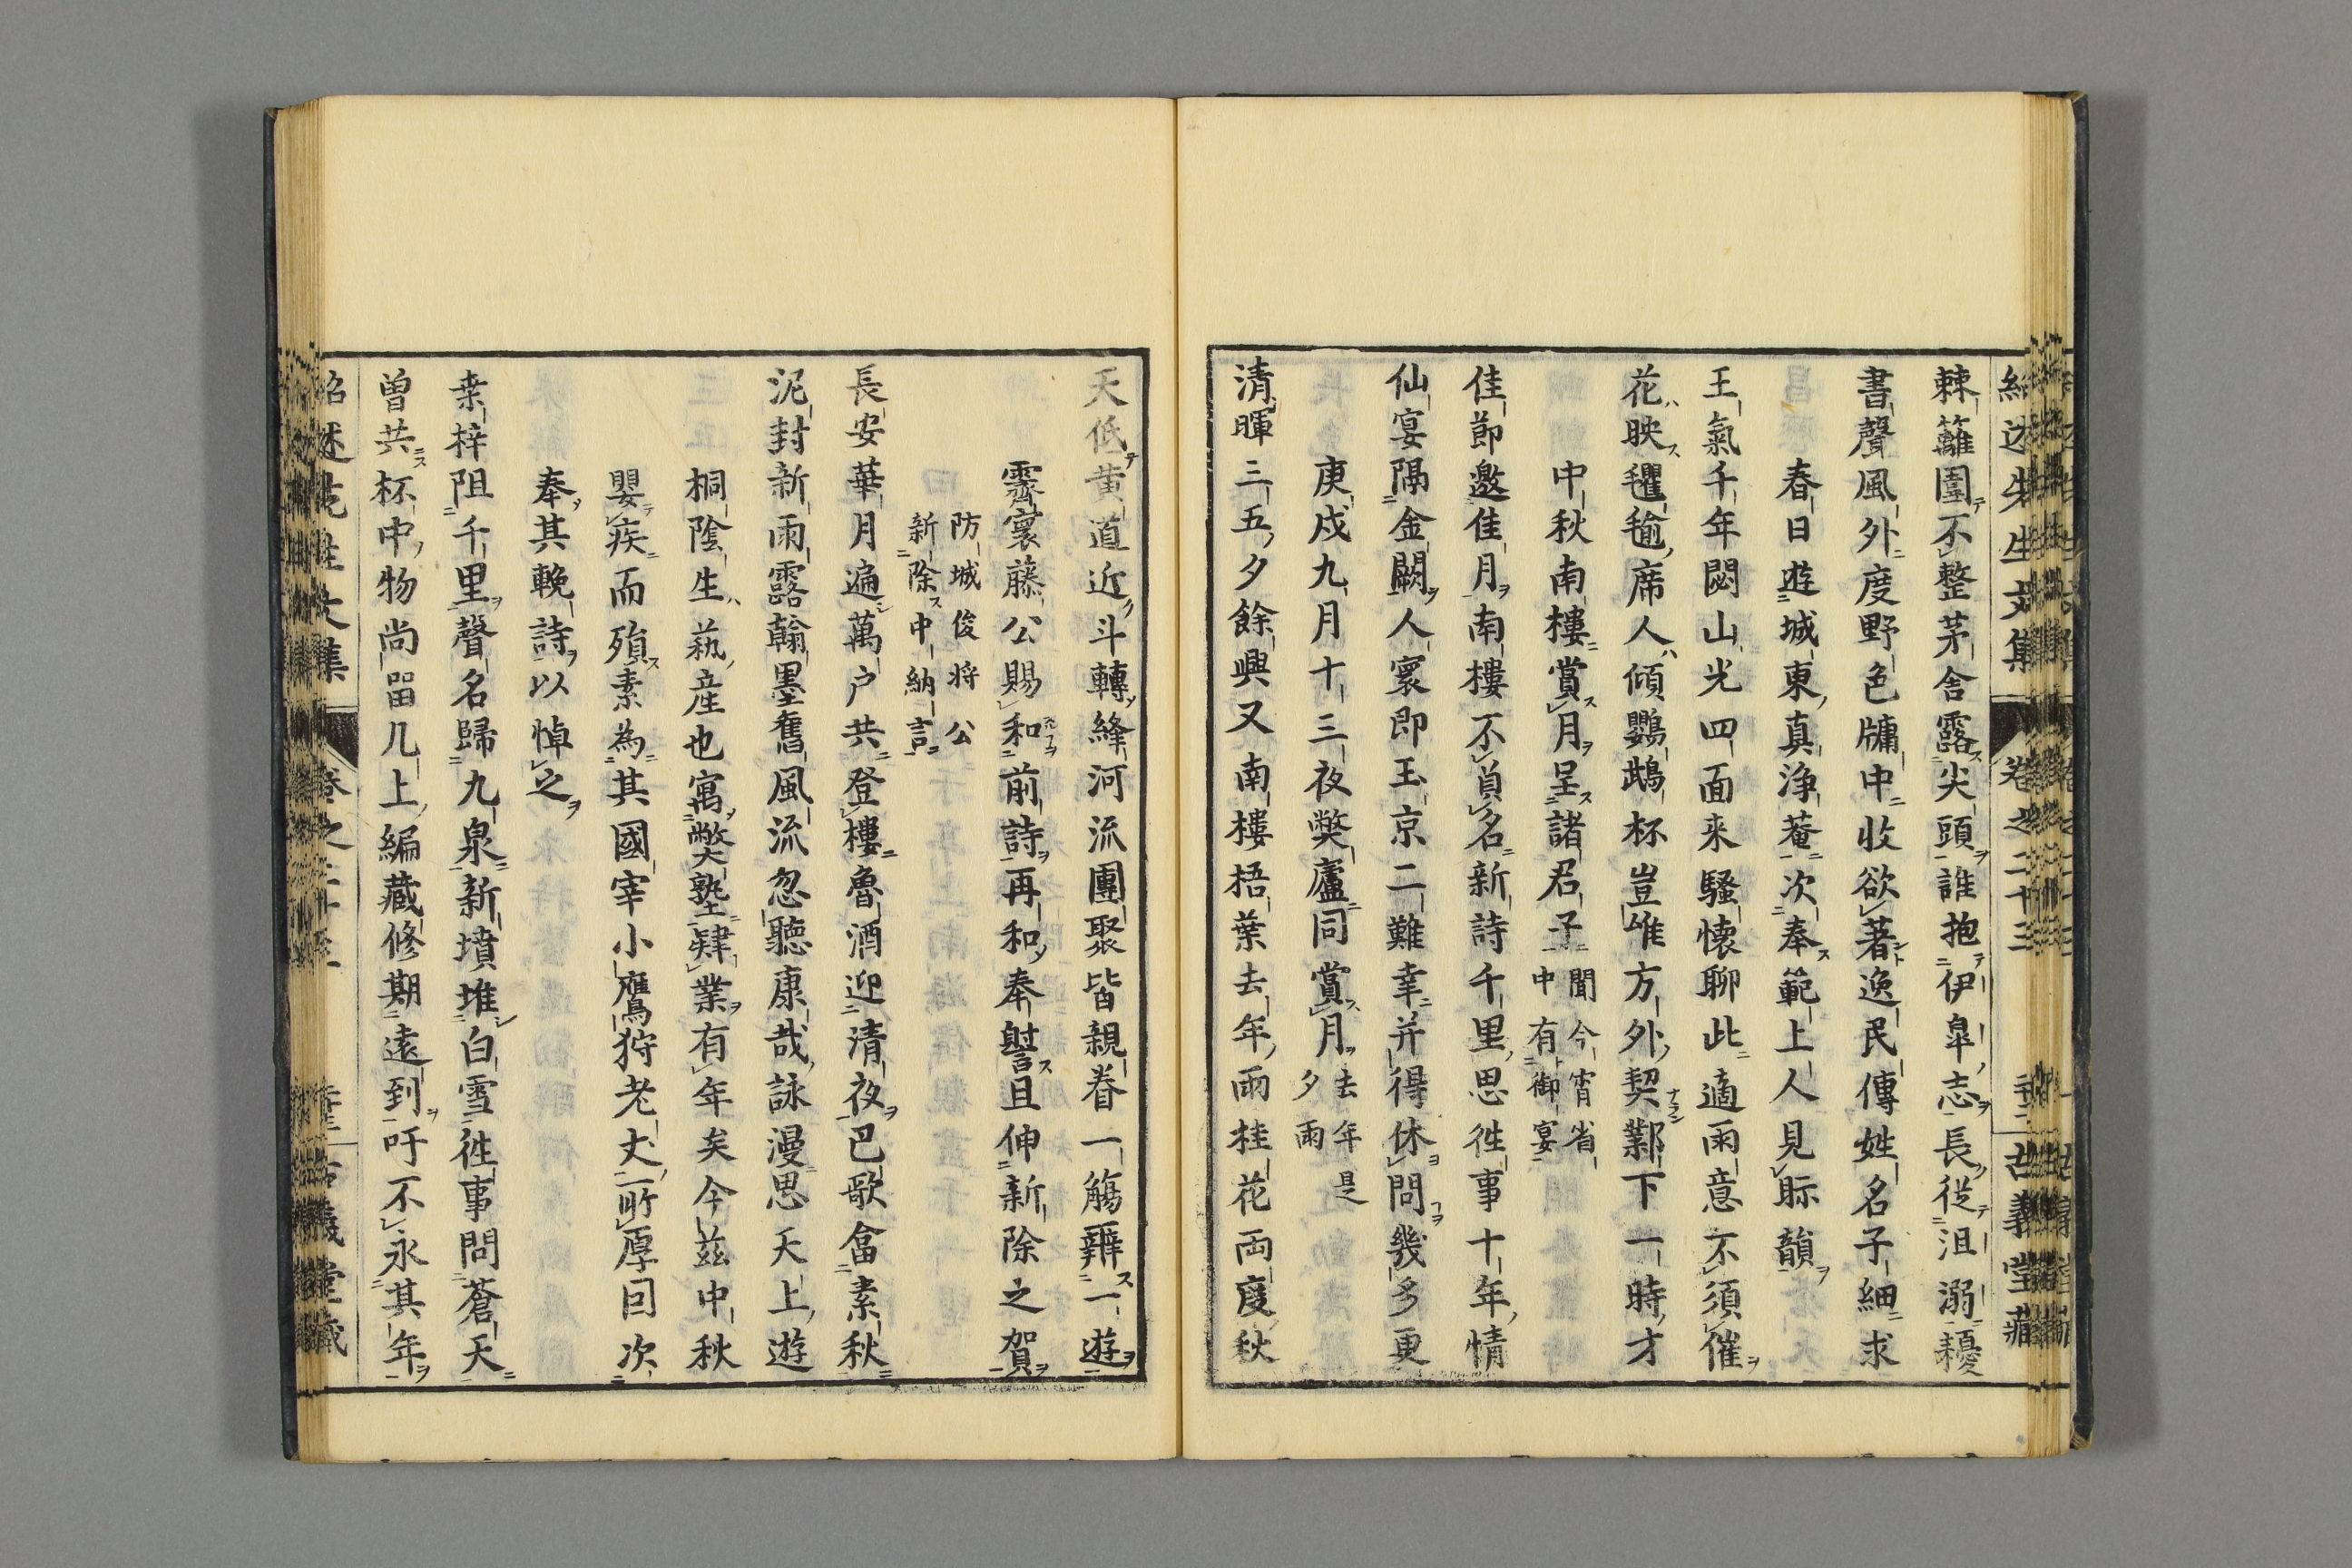 棘籬圍不整茅舍露尖頭誰抱伊皐志長從沮溺耰
書聲風外度野色牗中收欲著逸民傳姓名子細求
春日遊城東真浄菴次奉範上人見眎韻
王氣千年閟山光四面来騷懐聊此適雨意不須催
花映氍毹席人傾鸚鵡杯豈唯方外契鄴下一時才
中秋南樓賞月呈諸君子
聞今宵省
中有御宴
佳節邀佳月南樓不負名新詩千里思徃事十年情
仙宴隔金闕人寰即玉京二難幸并得休問幾多更
庚戌九月十三夜弊廬同賞月
去年是
夕雨
清暉三五夕餘興又南樓梧葉去年雨桂花両度秋
天低黄道近斗轉絳河流團聚皆親眷一觴辦一遊
霽寰藤公賜和前詩再和奉讐且伸新除之賀
防城俊将公
新除中納言
長安華月遍萬户共登樓魯酒迎清夜巴歌畣素秋
泥封新雨露翰墨舊風流忽聽康哉詠漫思天上遊
桐陰生蓺産也寓弊塾肄業有年矣今茲中秋
嬰疾而殞素為其國宰小鷹狩老丈所厚因次
奉其輓詩以悼之
桒梓阻千里聲名歸九泉新墳堆白雪徃事問蒼天
曽共杯中物尚畱几上編藏修期遠到吁不永其年